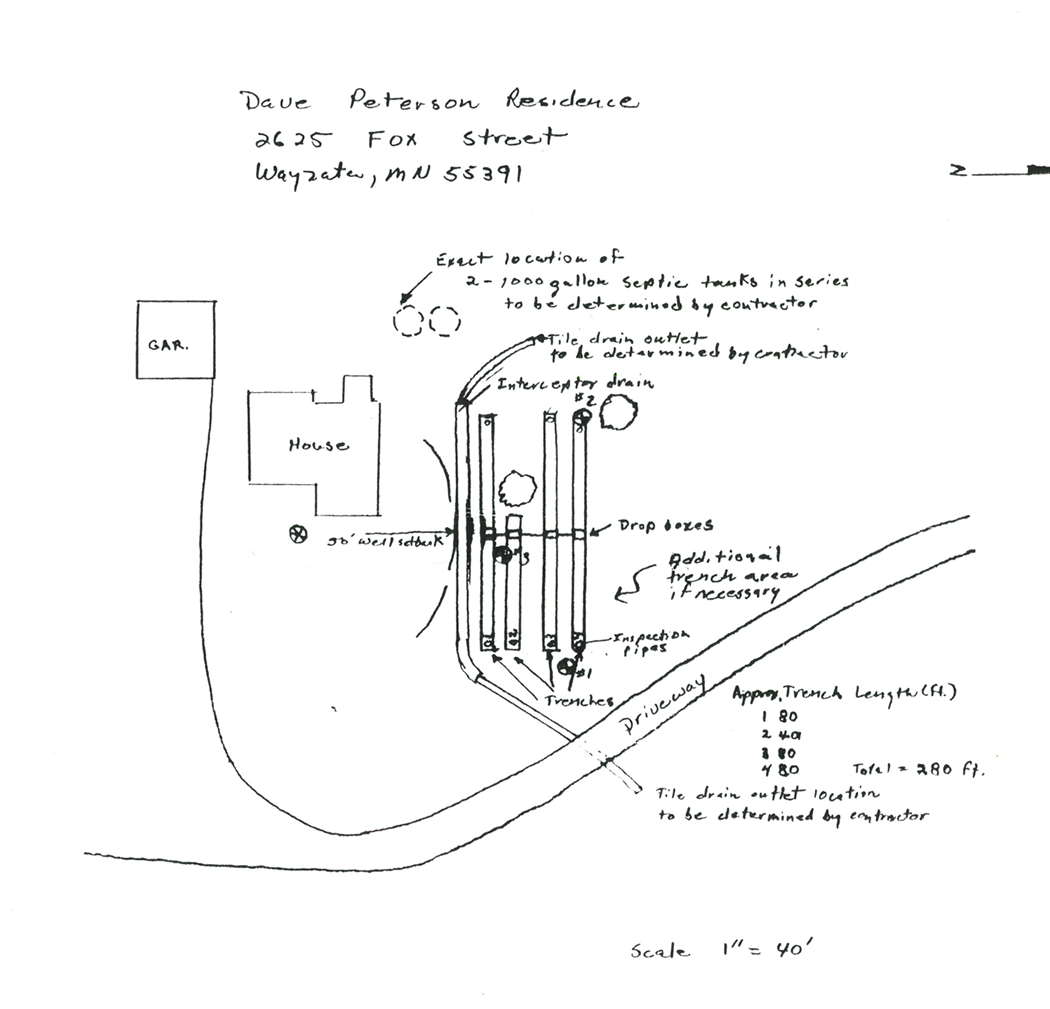 Dave Peterson Residence
2625 Fox Street
Wayzata, MN 55391
N
Exact location of
2-1000 gallon septic tanks in series
to be determined by contractor
Tile drain outlet
to be determined by contractor
Interceptor drain
GAR.
#2
House
Drop boxes
50' well setback
#3
Additional
trench area
if necessary
Inspection
pipes
#1
Trenches
Driveway
Approx. Trench Length (ft.)
1 80
2 40
3 80
4 80 Total = 280 ft.
Tile drain outlet location
to be determined by contractor
Scale 1" = 40'